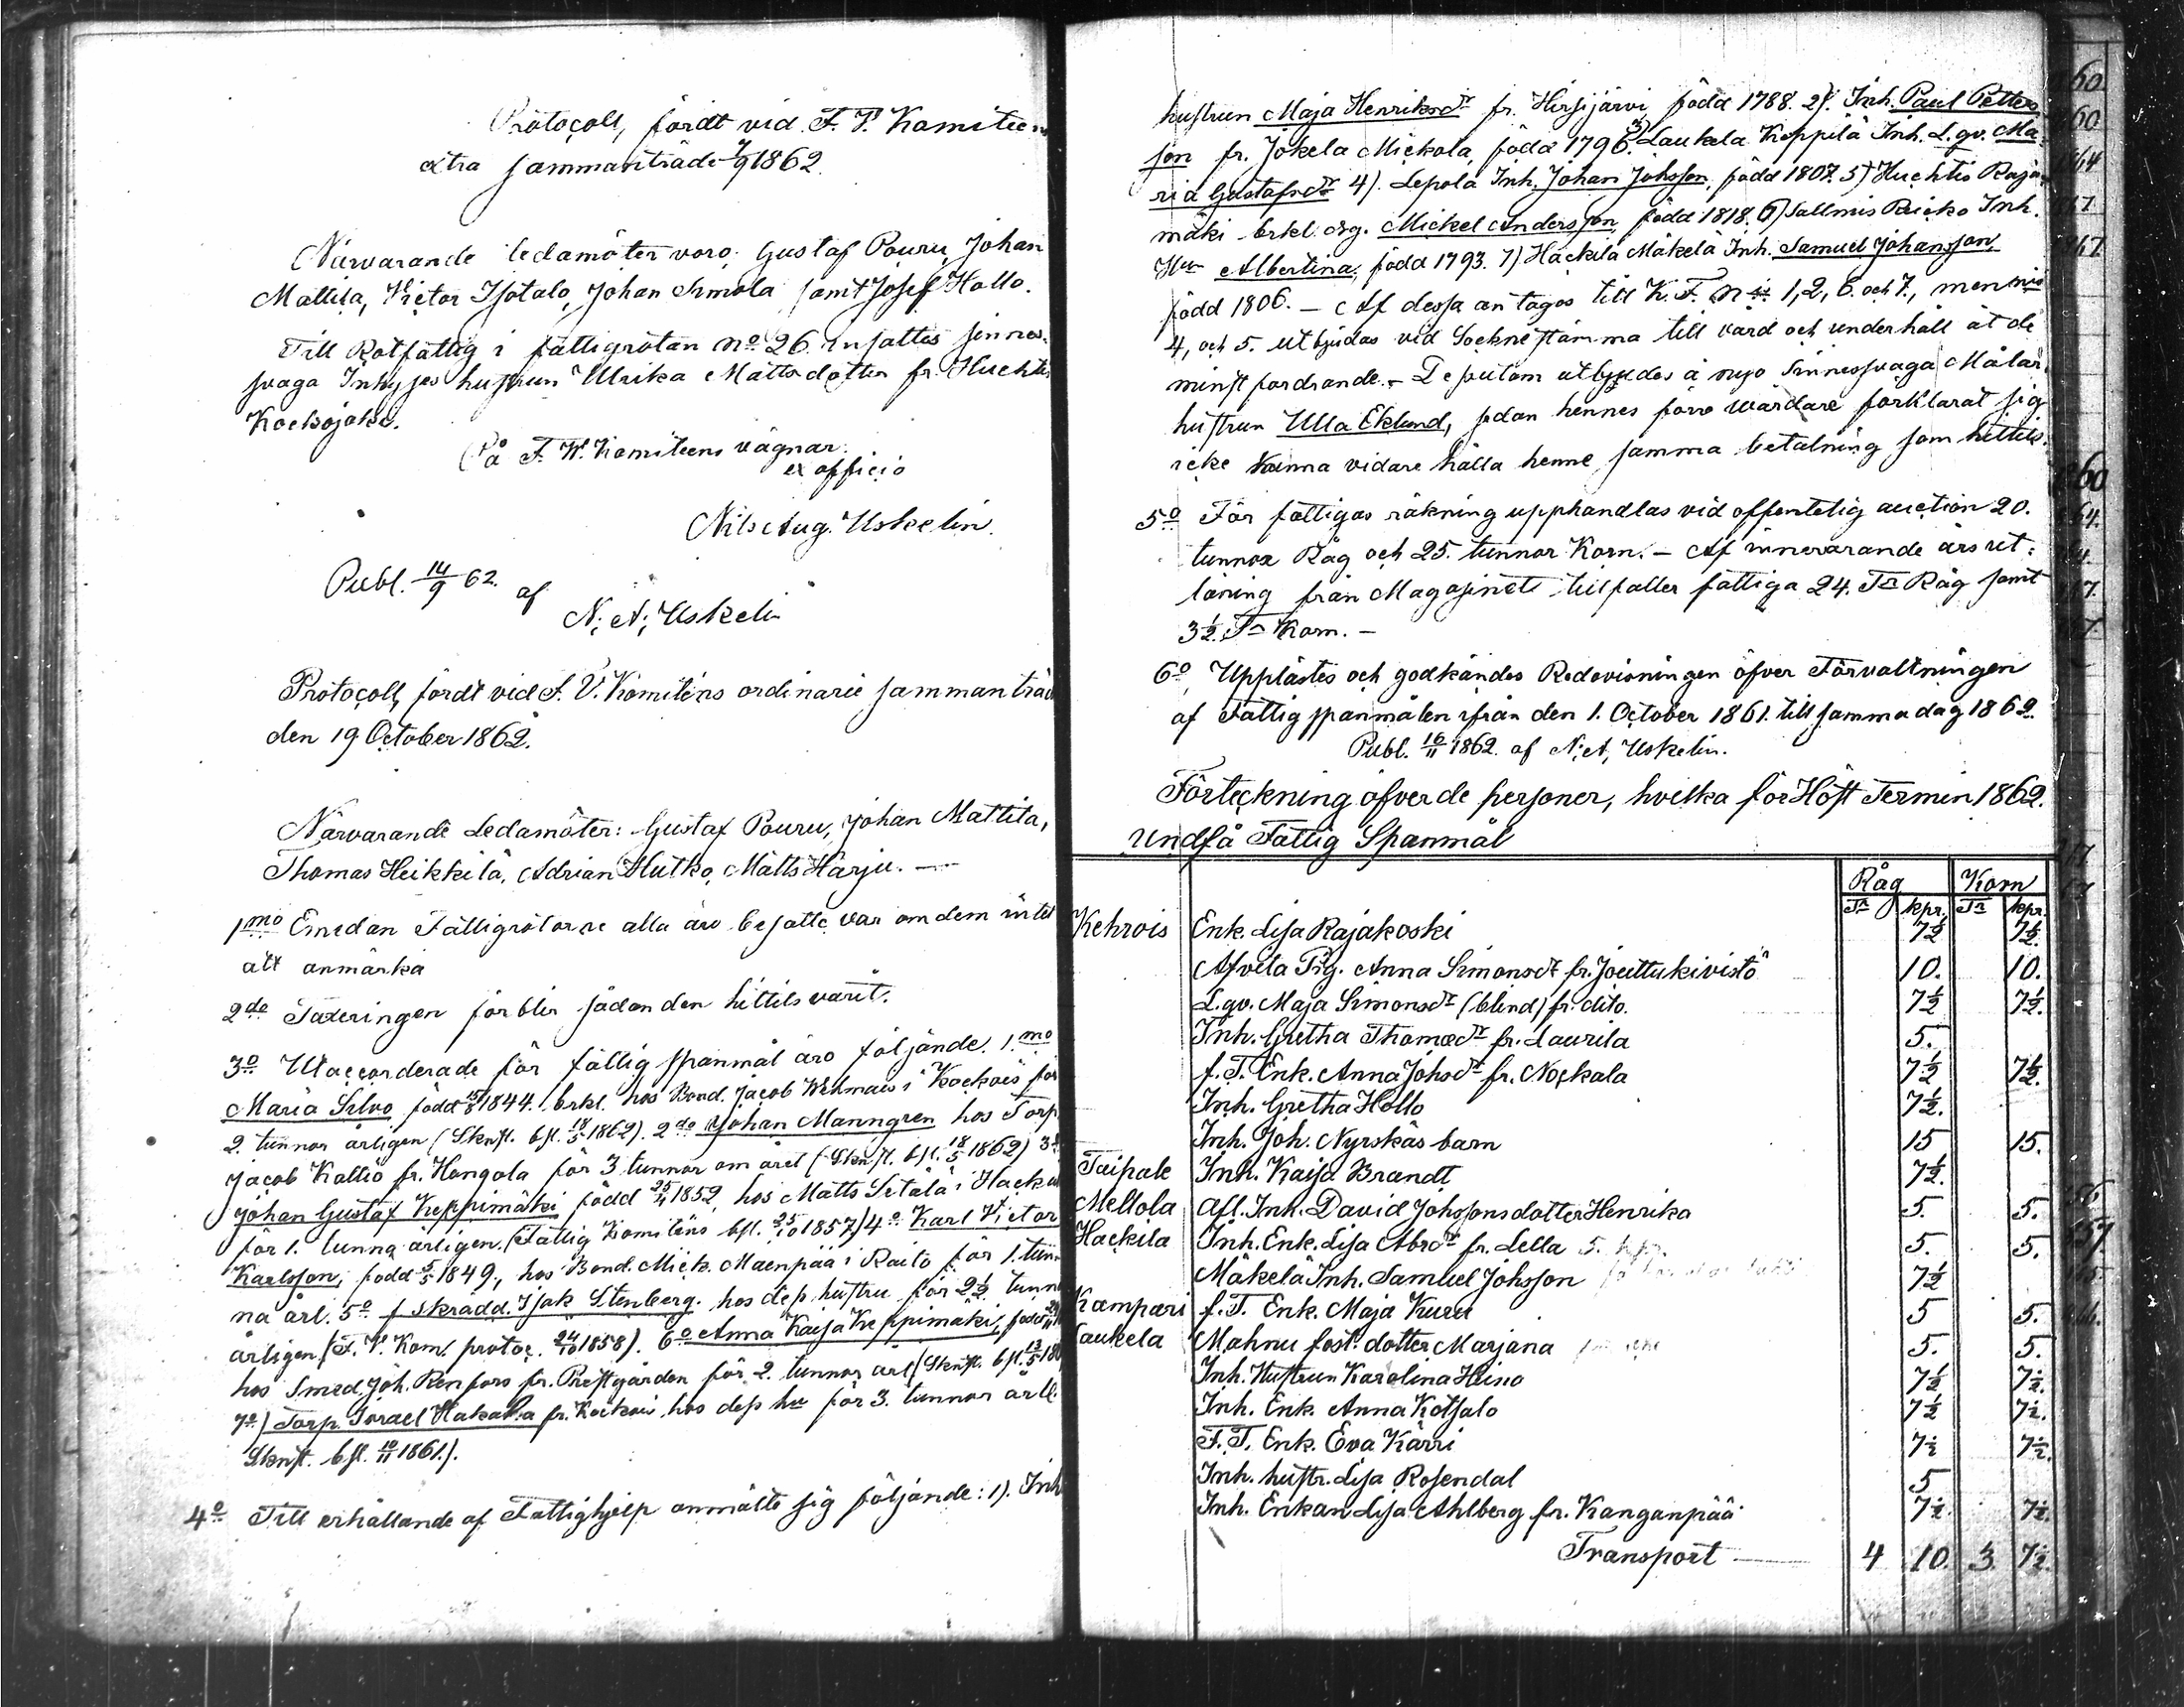 Protocoll, fördt vid F. V. Komiteens
extra sammanträde 7/9 1862.
Närvarande ledamöter voro: Gustaf Pouru, Johan
Mattila, Victor Isotalo, Johan Simola samt Josef Hollo.
Till Rotfattig i fattigrotan No 26. insattes sinnes-
svaga Inhyses hustrun Ulrika Mattsdotter fr. Huchtis
Kocksojoki.
På F. V. Komiteens vägnar.
ex officio
Nils Aug. Uskelin.
Publ. 14/9 62. af
N. A. Uskelin
Protocoll, fördt vid F. V. Komiténs ordinarie sammanträde
den 19 October 1862.
Närvarande Ledamöter: Gustaf Pouru, Johan Mattila,
Thomas Heikkilä, Adrian Hutko, Matts Harju. —
1mo Emedan Fattigrotarne alla äro besatte var om dem intet
att anmärka
2do Taxeringen förblir sådan den hittils varit.
3o Utaccorderade för fattig spanmål äro följande. 1.mo
Maria Silvo född 15/8 1844. brkl. hos Bond. Jacob Wehmais i Kockois för
2. tunnor årligen (Sknst. bsl. 18/5 1862). 2do Johan Manngren hos Torp.
Jacob Kallio fr. Hongola för 3 tunnor om året (Sknst. bsl. 18/5 1862) 3o
Johan Gustaf Keppimäki född 25/4 1852, hos Matts Setälä i Hackila
för 1. tunna årligen. (Fattig Komiténs bsl. 25/10 1857) 4o Karl Victor
Karlsson, född 5/5 1849, hos Bond. Mick. Mäenpää i Raito för 1. tun-
na årl. 5o f skrädd. Isak Stenberg. hos dess hustru för 2½ tunna
årligen (F. V. Kom. protoc. 24/10 1858). 6o Anna Kaisa Keppimäki, född
hos Smed. Joh. Renfors fr. Prestgården för 2. tunnor årl (Sknst. bsl.
7o) Torp. Israel Hakala fr. Kockois hos dess hu för 3. tunnor årl.
Sknst. bsl. 10/11 1861.).
4o Till erhållande af Fattighjelp anmälte sig följande: 1). Inh
hustrun Maja Henriksdr fr. Hirsjärvi född 1788. 2). Inh. Paul Petters-
son fr. Jokela Mickola, född 1796. 3) Laukela Keppilä Inh. L. gv. Ma-
ria Gustafsdr 4). Lepola Inh. Johan Johsson, född 1807. 5) Huchtis Raja-
mäki brkl. drg. Mickel Andersson, född 1818. 6) Sallmis Reicko Inh.
Hu Albertina, född 1793. 7) Hackila Mäkelä Inh. Samuel Johansson,
född 1806. — Af dessa antagas till K. F. N:is 1, 2, 6. och 7., men nis
4, och 5. utbjudas vid Socknestämma till vård och underhåll åt de
minst fordrande. — Dessutom utbjudes å nyo Sinnessvaga Målar
hustrun Ulla Eklund, sedan hennes förre vårdare förklarat sig
icke kunna vidare hålla henne samma betalning som hittils.
5o För fattigas räkning upphandlas vid offentelig auction 20.
tunnor Råg och 25. tunnor Korn. — Af innevarande års ut-
låning från Magasinete tillfaller fattiga 24. Tr Råg samt
3½ Tr Korn. —
6o Upplästes och godkändes Redovisningen öfver Förvaltningen
af Fattig spanmålen ifrån den 1. October 1861. till samma dag 1862.
Publ. 16/11 1862. af N. A. Uskelin.
Förteckning öfver de personer, hvilka för Höst Termin 1862.
undfå Fattig Spanmål
Råg Korn
Tr kpr. Tr kpr.
Kehrois Enk. Lisa Rajakoski 7½ 7½.
Afvela Pig. Anna Simonsdr fr. Jouttukivistö 10. 10.
L. gv. Maja Simonsdr (blind) fr. dito. 7½ 7½.
Inh. Gretha Thomædr fr. Laurila 5.
f. T. Enk. Anna Johsdr fr. Nockala 7½ 7½.
Inh. Gretha Hollo 7½.
Inh. Joh. Nyrskäs barn 15 15.
Taipale Inh. Kaisa Brandt 7½.
Mellola Afl. Inh. David Johssons dotter Henrika 5. 5.
Hackila Inh. Enk. Lisa Abrdr fr. Lella 5. kpr. 5. 5.
Mäkelä Inh. Samuel Johsson 7½
Kampari f. T. Enk. Maja Kuru 5 5.
Laukela Mahnu fost. dotter Marjana 5. 5.
Inh. Hustrun Karolina Heino 7½ 7½.
Inh. Enk. Anna Kotsalo 7½ 7½.
F. T. Enk. Eva Kärri 7½ 7½.
Inh. hustr. Lisa Rosendal 5
Inh. Enkan Lisa Ahlberg fr. Kanganpää 7½. 7½.
Transport — 4 10. 3. 7½.